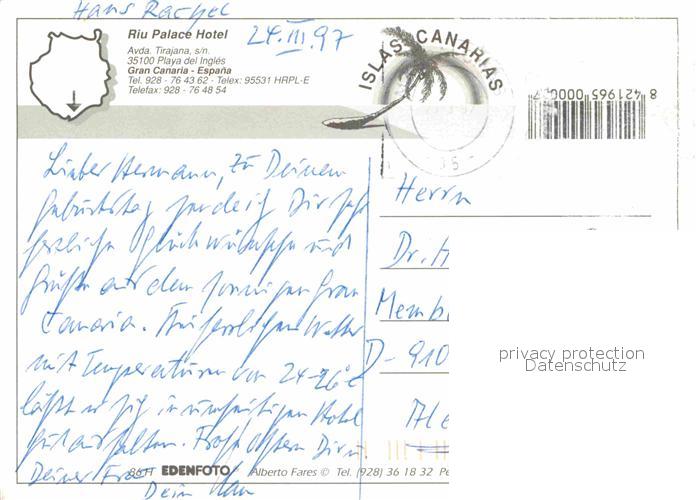 Hans Rachel
Riu Palace Hotel
24.III.97
Avda. Tirajana, s/n.
35100 Playa del Inglés
Gran Canaria - España
Tel. 928 - 76 43 62 - Telex: 95531 HRPL-E
Telefax: 928 - 76 48 54
ISLAS CANARIAS
8 421965 0000
Lieber Hermann, zu Deinem
Geburtstag sende ich Dir sehr
herzliche Glückwünsche und
Grüße aus dem sonnigen Gran
Canaria. Bei herrlichem Wetter
mit Temperaturen von 24-26°C
läßt es sich in unserem Hotel
gut aushalten. Frohe Ostern Dir u.
Deiner Frau
Dein Han
Herrn
Dr. H
Memb
D-910
privacy protection
Datenschutz
EDENFOTO Alberto Fares © Tel. (928) 36 18 32